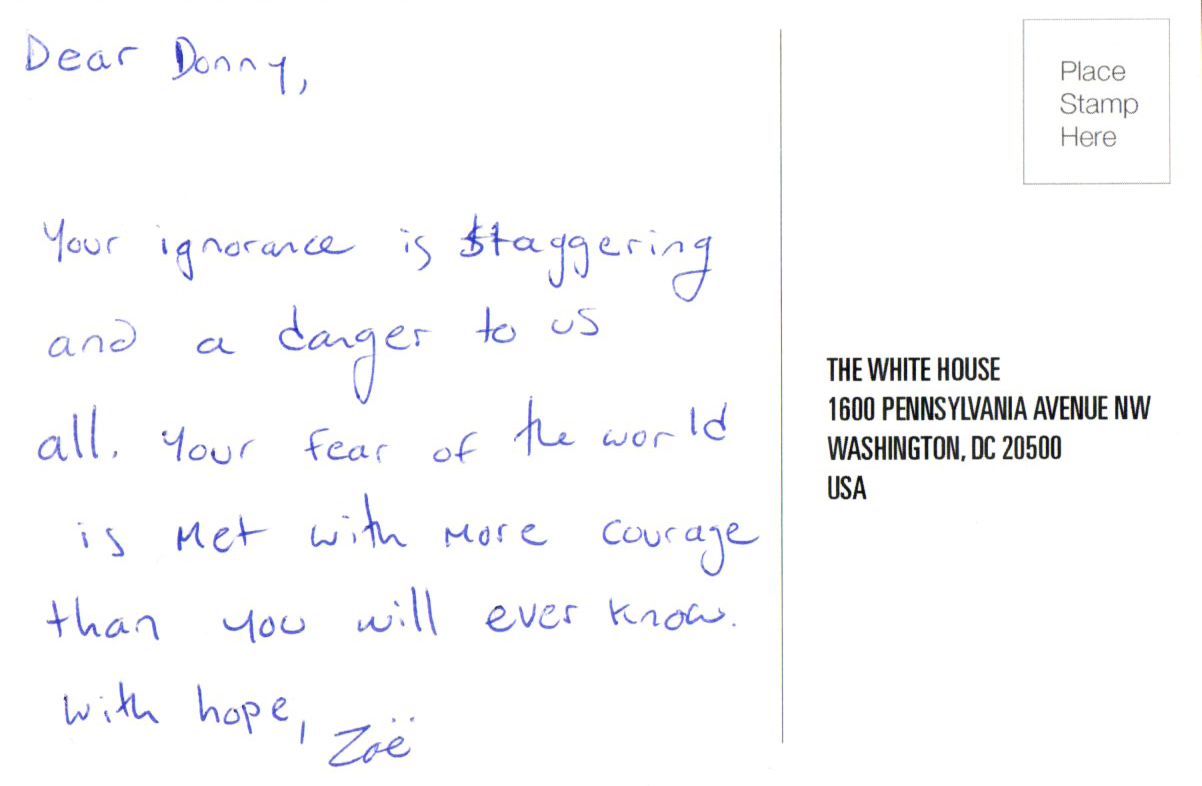 Dear Donny,
Your ignorance is staggering
and a danger to us
all. Your fear of the world
is met with more courage
than you will ever know.
With hope,
Zoë
Place
Stamp
Here
THE WHITE HOUSE
1600 PENNSYLVANIA AVENUE NW
WASHINGTON, DC 20500
USA